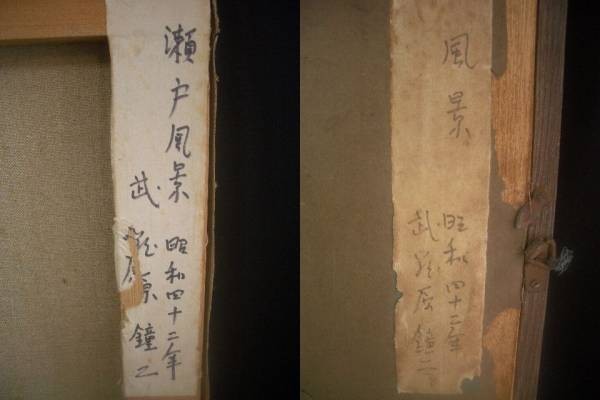 瀬戸風景 昭和四十二年
武 原 鐘二
風景 昭和四十二年
武 原 鐘二